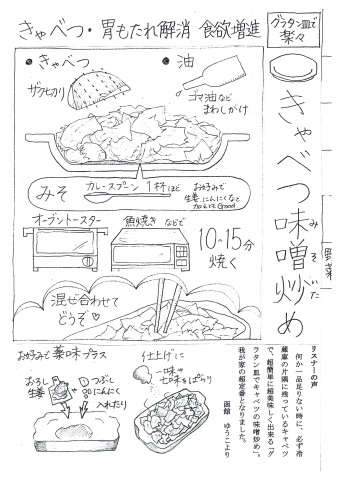 きゃべつ・胃もたれ解消 食欲増進
グラタン皿で
楽々
きゃべつ味噌炒め
みそ
だ
野菜
●きゃべつ
ザク切り
●油
ゴマ油など
まわしがけ
みそ
カレースプーン 1杯ほど
お好みで
生姜、にんにくなど
加えても Good
オーブントースター
魚焼き などで
10~15分
焼く
混ぜ合わせて
どうぞ♡
お好みで 薬味プラス
おろし
生姜
つぶし
にんにく
入れたり
仕上げに
一味や
七味をぱらり
リスナーの声
何か一品足りない時に、必ず冷
蔵庫の片隅に残っているキャベツ
で、超簡単に超美味しく出来る「グ
ラタン皿でキャベツの味噌炒め」。
我が家の超定番となりました。
函館 ゆうこより